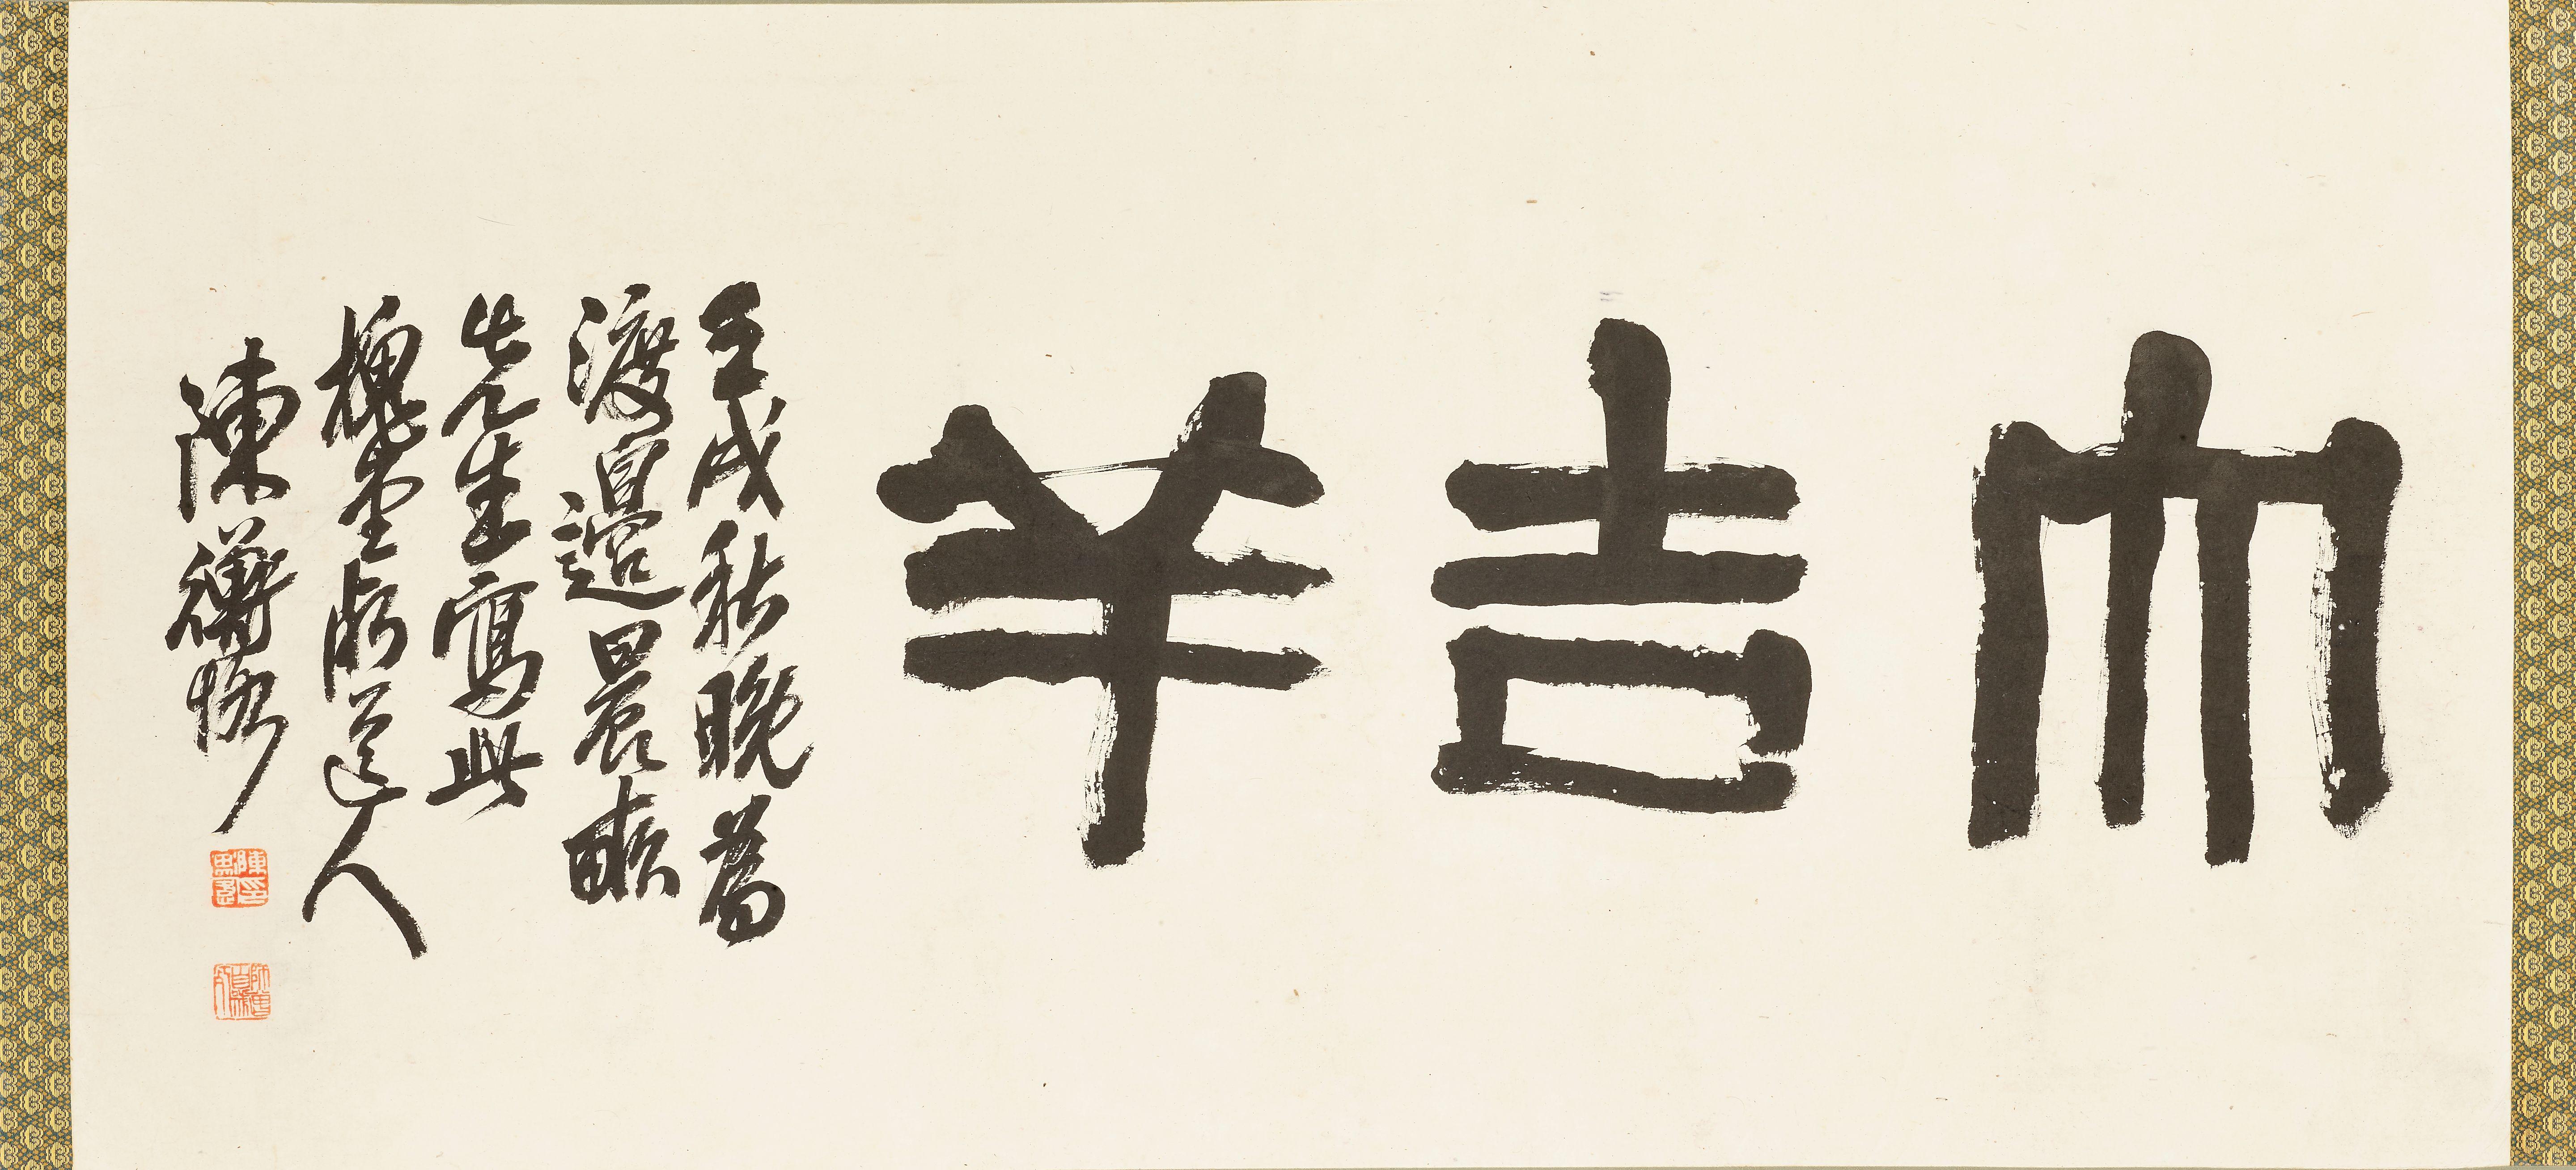 大吉羊
壬戌秋晚為
渡邊晨畝
先生寫此
槐堂朽道人
陳衡恪
陳印
師曾